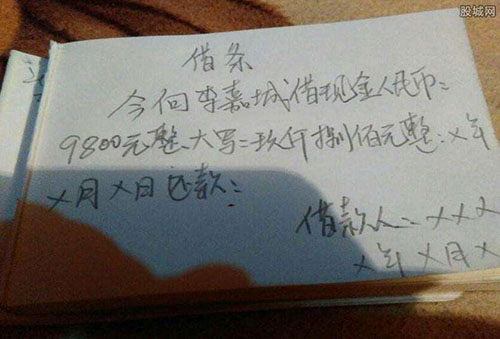 股城网
借条
今向李嘉城借现金人民币:
9800元整、大写:玖仟捌佰元整:X年
X月X日还款:
借款人: XXX
X年X月X